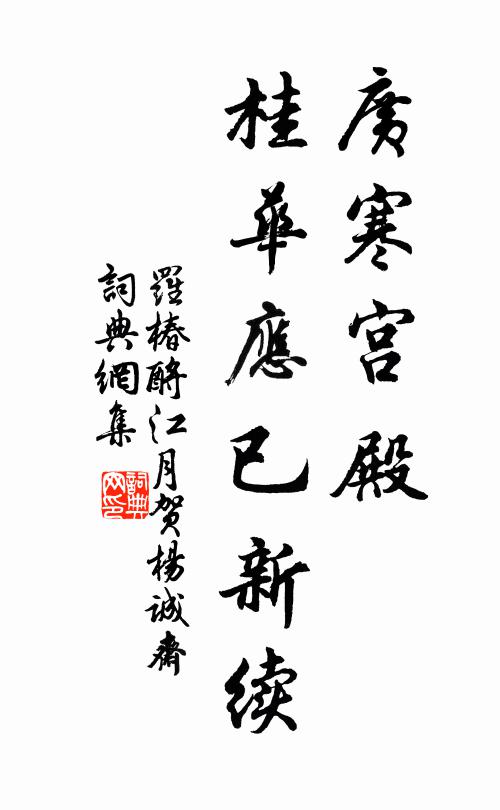 廣寒宮殿
桂華應已新续
羅椿酹江月賀楊誠齋
詞典網集
詞典
网印